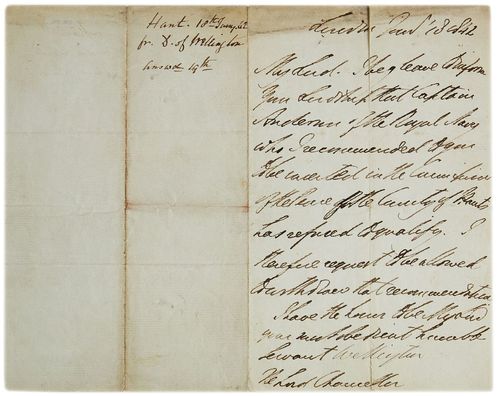 Hants. 18th Jany 42
fr. D. of Wellington
answd 19th
London Jany 18 1842
My Lord. I beg leave to inform
Your Lordship that Captain
Anderson of the Royal Navy
who I recommended to you
to be inserted in the Commission
of the Peace of the County of Hants
has refused to qualify. I
therefore request to be allowed
to withdraw that recommendation
I have the honor to be My Lord
your most obedient humble
Servant Wellington
The Lord Chancellor